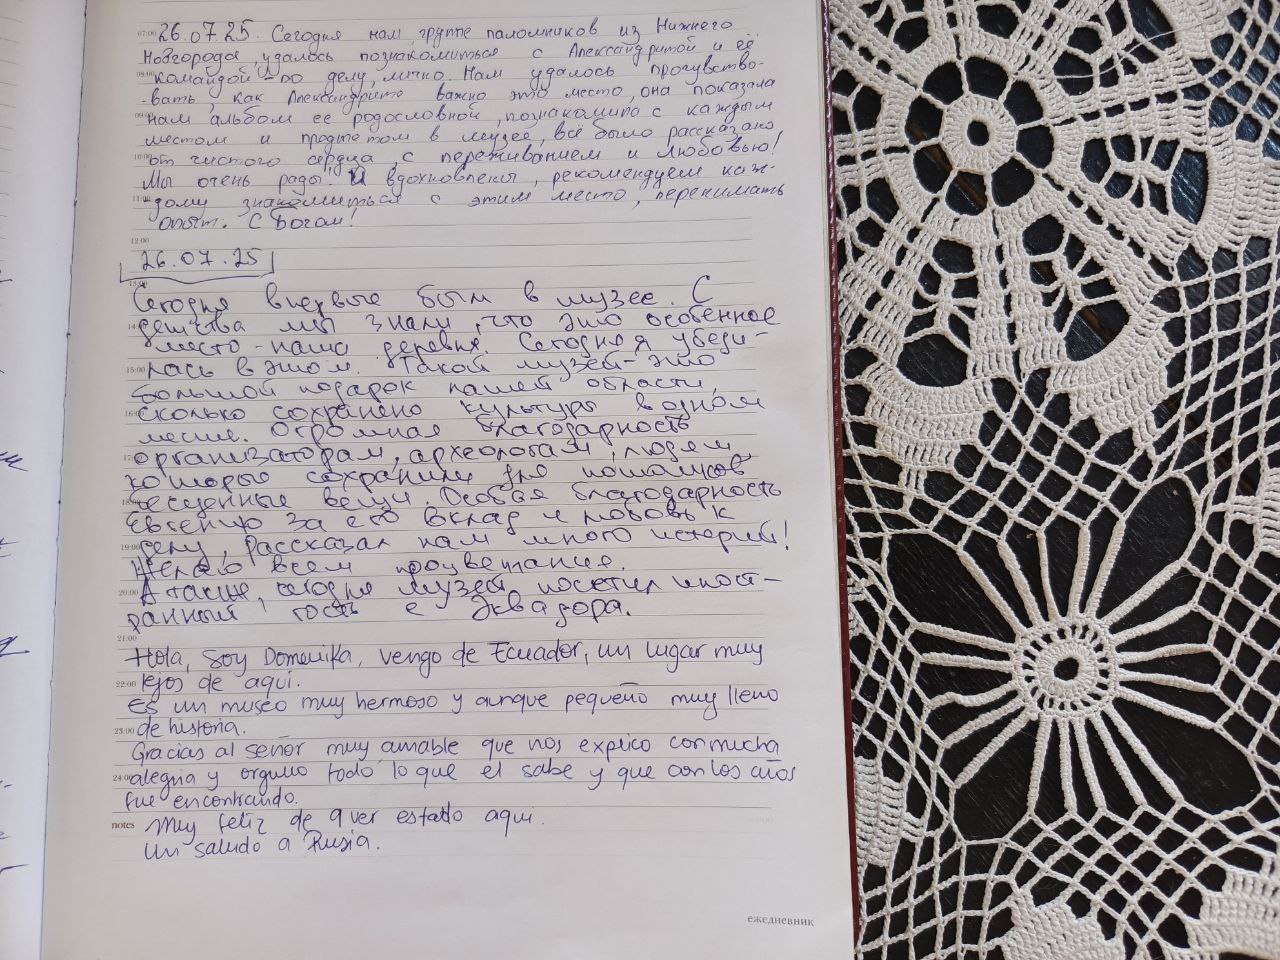 26.07.25. Сегодня нам, группе паломников из Нижнего
Новгорода, удалось познакомиться с Александритой и её
командой по делу, лично. Нам удалось прочувство-
-вать, как Александрито важно это место, она показала
нам альбом её родословной, познакомила с каждым
местом и предметом в музее, всё было рассказано
от чистого сердца, с переживанием и любовью!
Мы очень рады. И вдохновлены, рекомендуем каж-
дому знакомиться с этим место, перенимать
опыт. С Богом!
26.07.25
Сегодня впервые был в музее. С
детства мы знали, что это особенное
место - наша деревня. Сегодня убеди-
лась в этом. Такой музей - это
большой подарок нашей области,
сколько сохранено культуры в одном
месте. Огромная благодарность
организаторам, археологам, людям
которые сохранили для потомков
бесценные вещи. Особая благодарность
Евгению за его вклад и любовь к
делу, рассказал нам много историй!
Желаю всем процветания.
А также, сегодня музей посетил иност-
ранный гость с Эквадора.
Hola, soy Domenika, vengo de Ecuador, un lugar muy
lejos de aqui.
Es un museo muy hermoso y aunque pequeño muy lleno
de historia.
Gracias al señor muy amable que nos explico con mucha
alegria y orgullo todo lo que el sabe y que con los años
fue encontrando.
Muy feliz de aver estado aqui.
Un saludo a Rusia.
07:00
08:00
09:00
10:00
11:00
12:00
13:00
14:00
15:00
16:00
17:00
18:00
19:00
20:00
21:00
22:00
23:00
24:00
notes
ежедневник